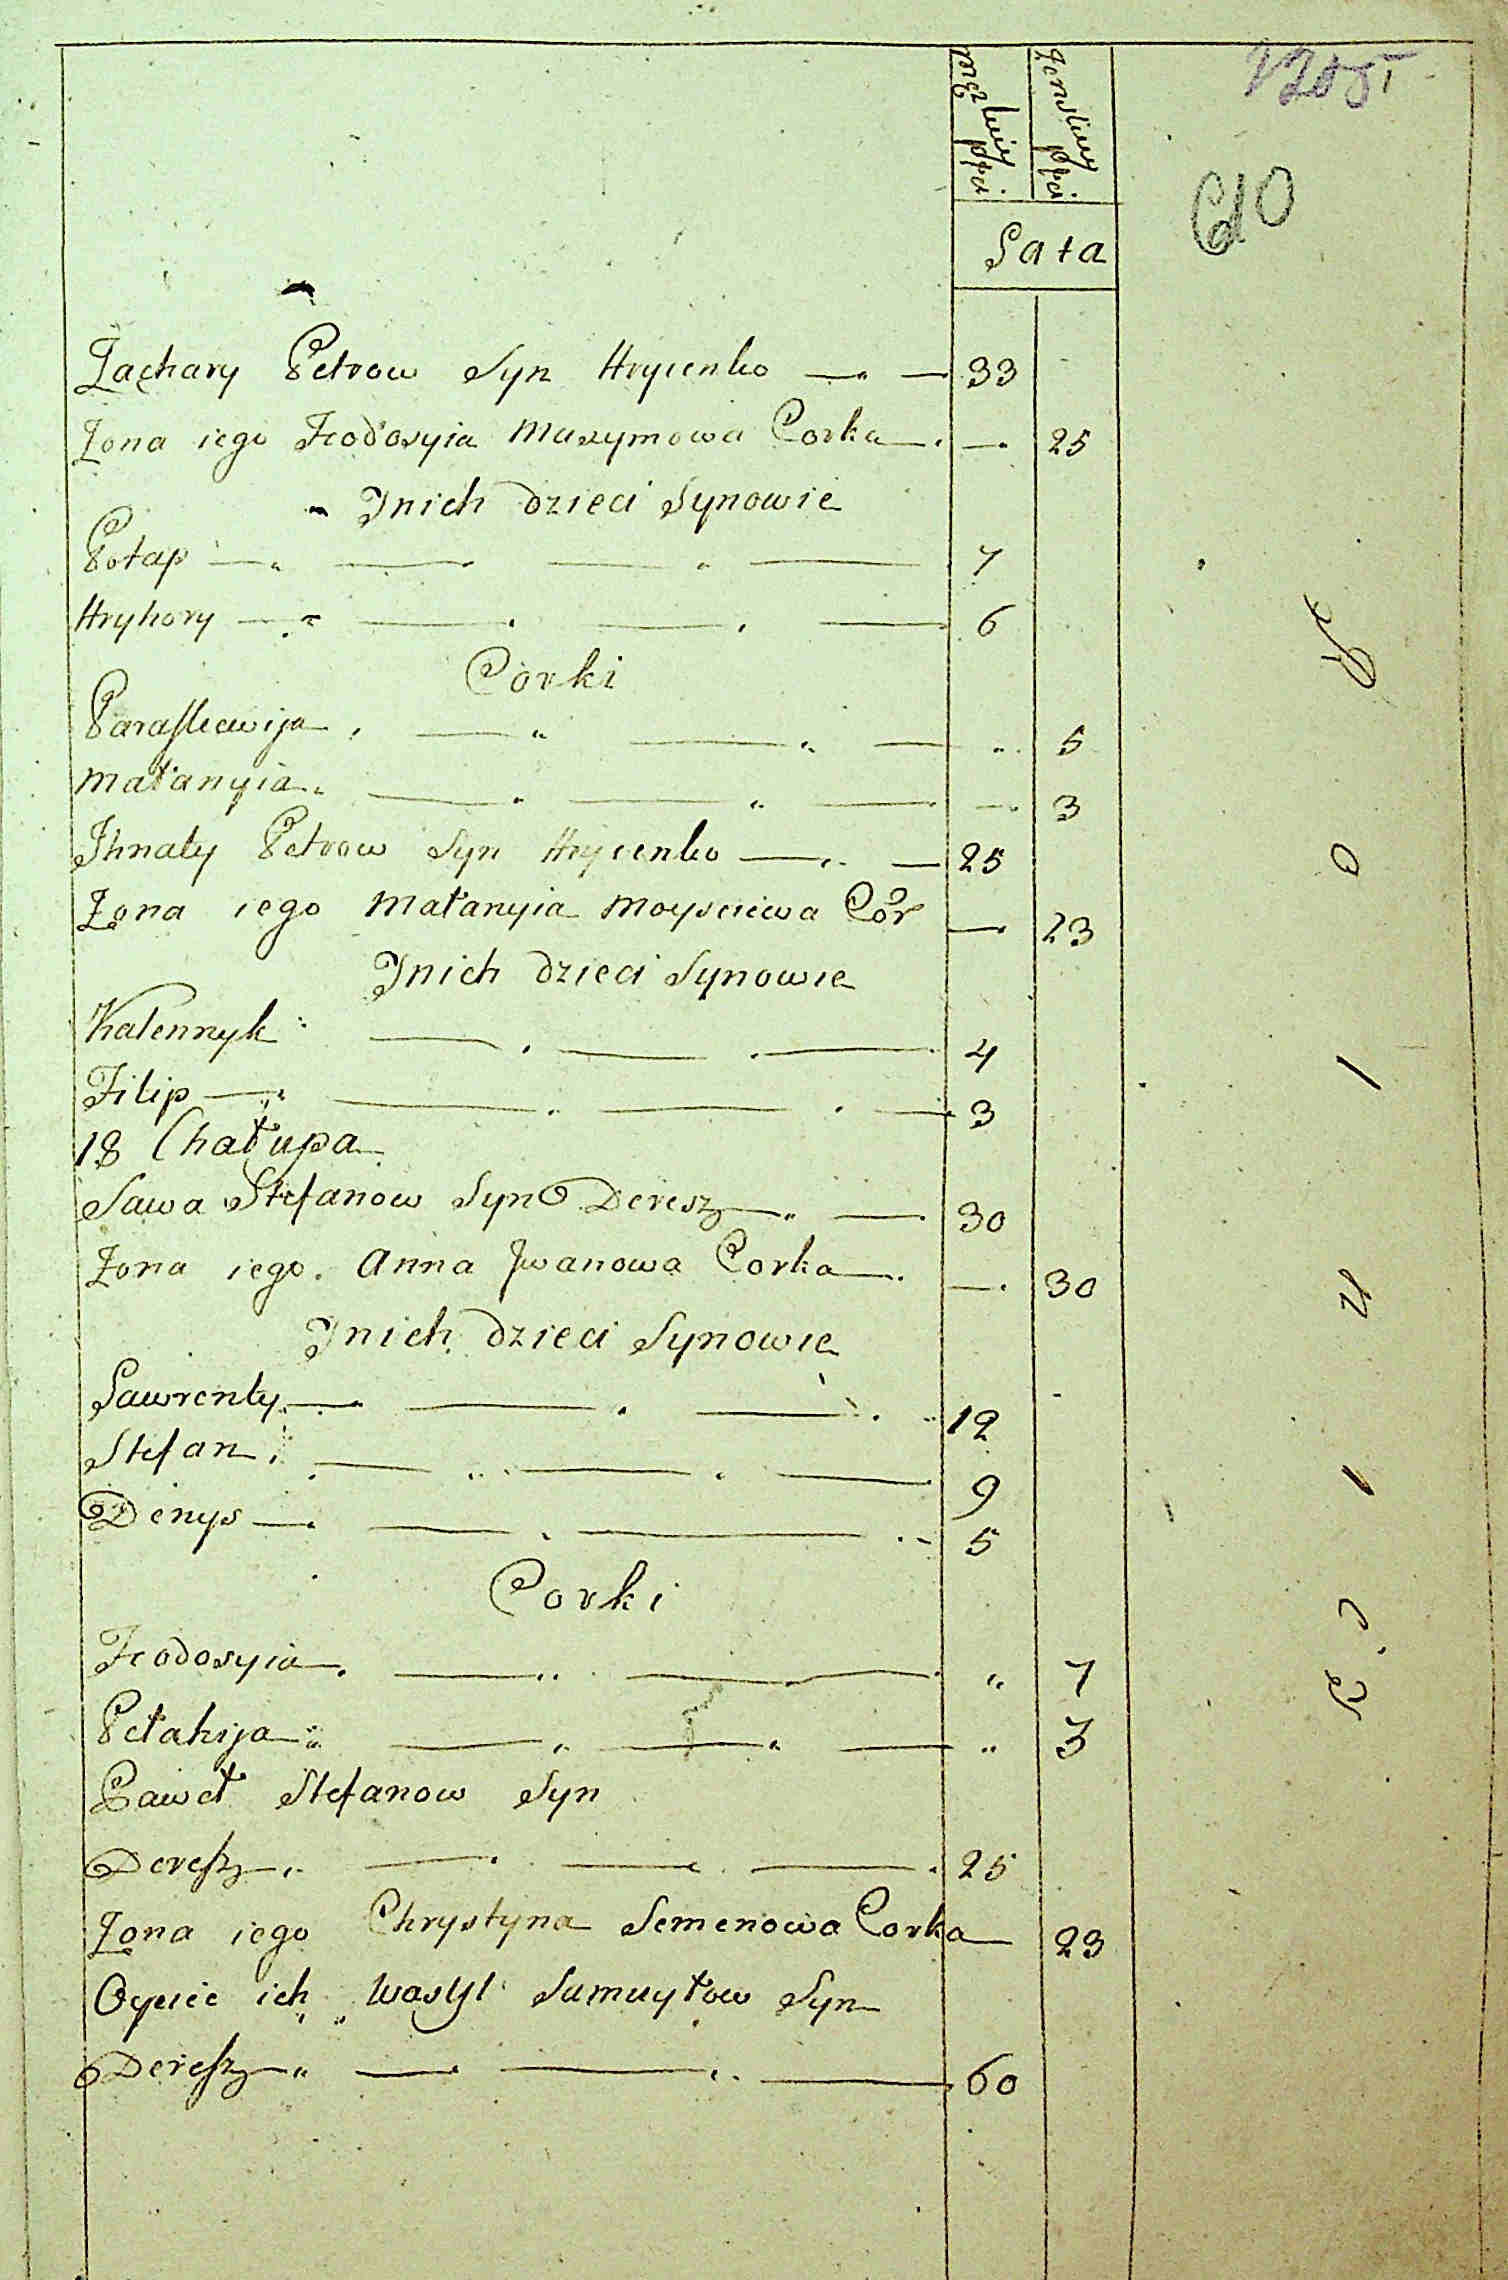 Męzkiey płci
Żenskiey płci
1205
610
Lata
Zachary Petrow Syn Hrycenko 33
Żona iego Feodosyia Maxymowa Corka 25
Jnich dzieci Synowie
Potap 7
Hryhory 6
Corki
Paraskewija 5
Małanyia 3
Jhnaty Petrow Syn Hrycenko 25
Żona iego Małanyia Moysciewa Cór 23
Jnich dzieci Synowie
Kalennyk 4
Filip 3
18 Chałupa
Sawa Stefanow Syn Deresz 30
Żona iego Anna Jwanowa Corka 30
Jnich dzieci Synowie
Lawrenty 12
Stefan 9
Denys 5
Corki
Feodosyia 7
Pełahija 3
Paweł Stefanow Syn
Deresz 25
Żona iego Chrystyna Semenowa Corka 23
Oyciec ich Wasyl Samuyłow Syn
Deresz 60